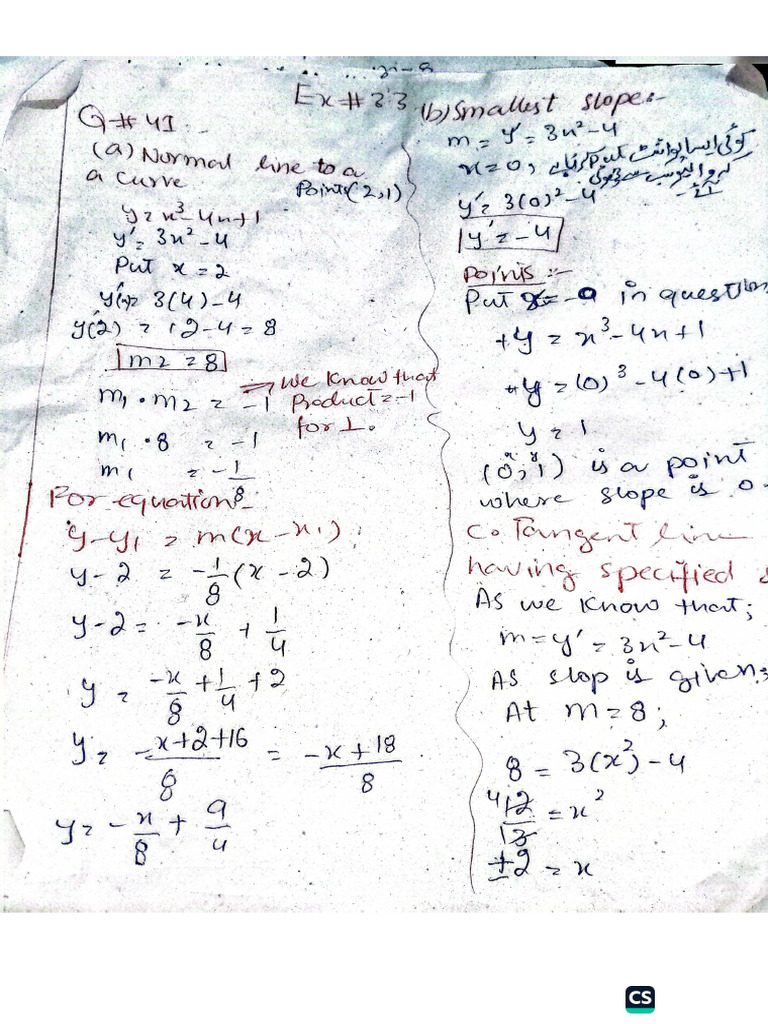 Ex # 3.3
Q # 41 :-
(a) Normal line to a
a curve
Points (2,1)
y = x³ - 4x + 1
y' = 3x² - 4
Put x = 2
y'(2) = 3(4) - 4
y'(2) = 12 - 4 = 8
m2 = 8
m1 . m2 = -1
→ We know that
Product = -1
for ⊥.
m1 . 8 = -1
m1 = -1/8
For equation :-
y - y1 = m(x - x1)
y - 2 = -1/8 (x - 2)
y - 2 = -x/8 + 1/4
y = -x/8 + 1/4 + 2
y = -x+2+16/8 = -x+18/8
y = -x/8 + 9/4
(b) Smallest slope :-
m = y' = 3x² - 4
x = 0, کوئی ایسا پوائنٹ Put کرنا ہے
y' = 3(0)² - 4
y' = -4
Points :-
Put x = 0 in question
+y = x³ - 4x + 1
+y = (0)³ - 4(0) + 1
y = 1
x y
(0, 1) is a point
where slope is 0
C. Tangent line
having specified
As we know that;
m = y' = 3x² - 4
As slop is given:
At m = 8;
8 = 3(x²) - 4
4 12/13 = x²
±2 = x
CS